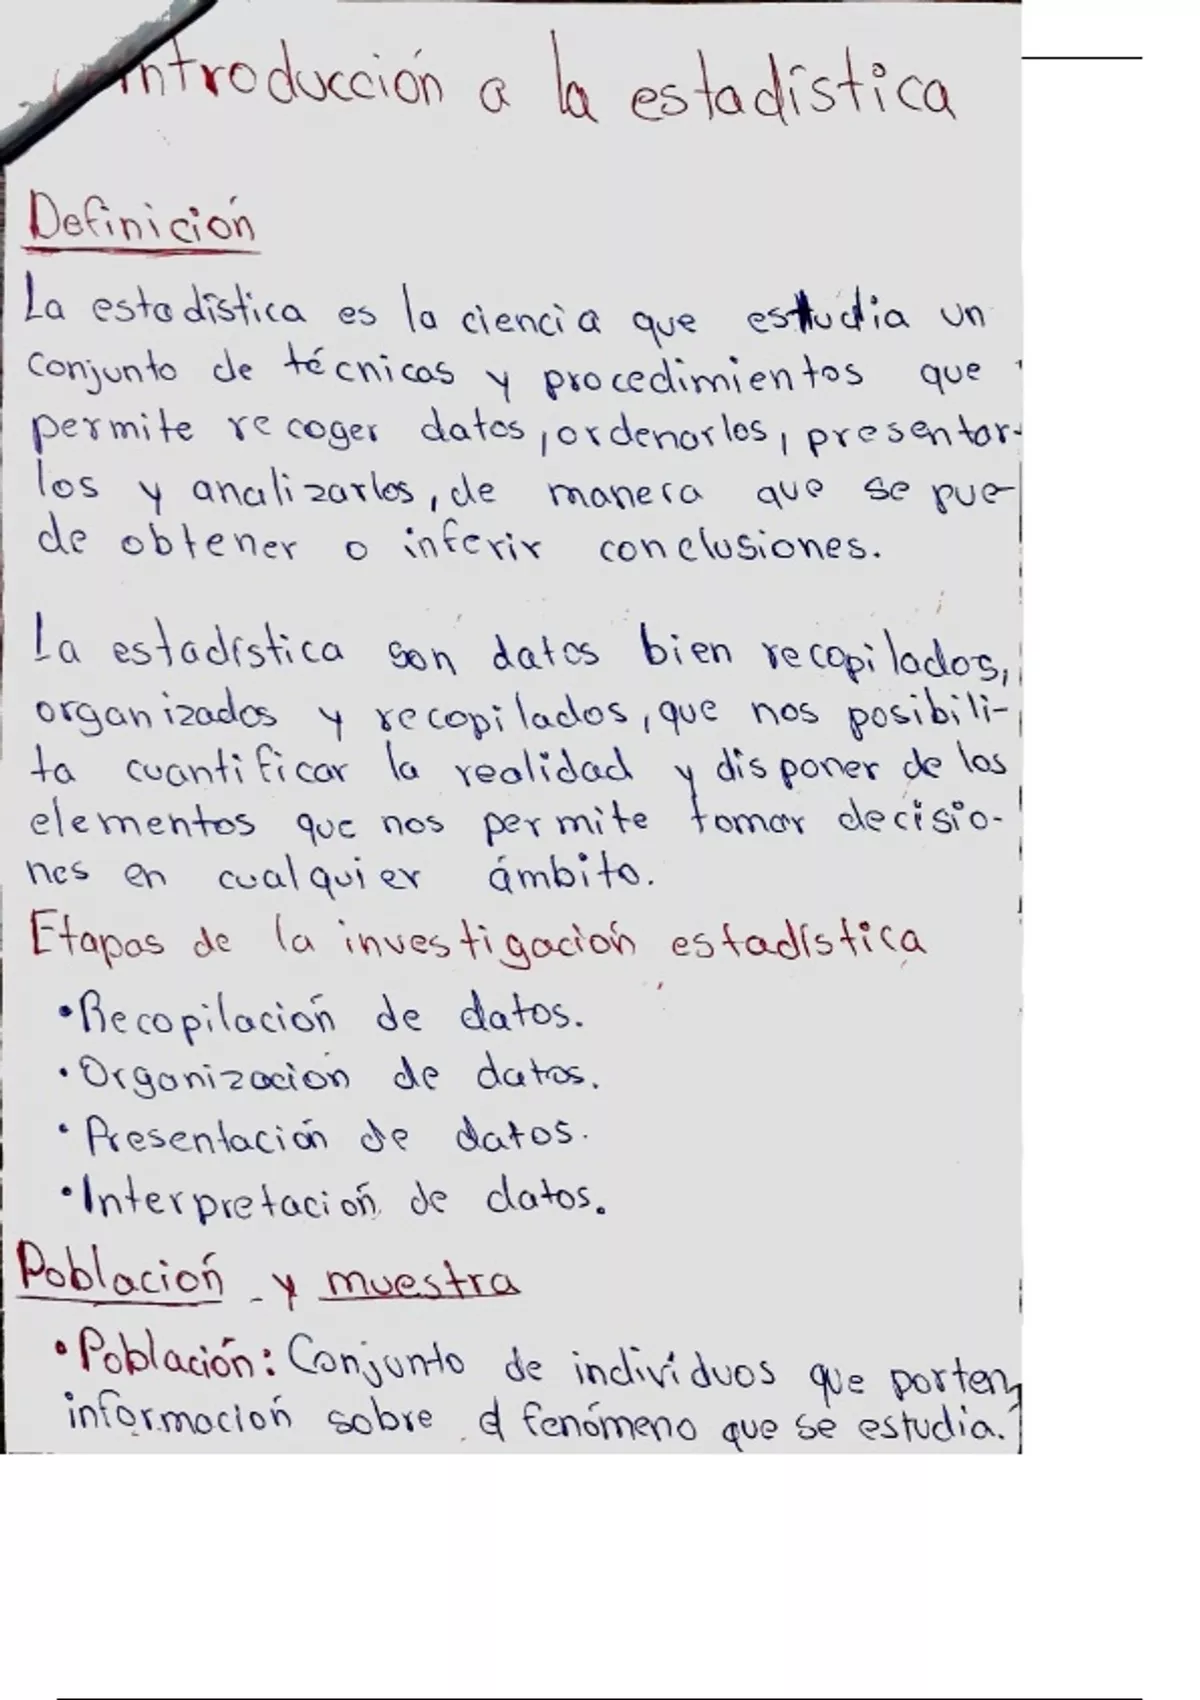 Introducción a la estadística
Definición
La estadística es la ciencia que estudia un
conjunto de técnicas y procedimientos que
permite recoger datos, ordenarlos, presentar-
los y analizarlos, de manera que se pue-
de obtener o inferir conclusiones.
La estadística son datos bien recopilados,
organizados y recopilados, que nos posibili-
ta cuantificar la realidad y disponer de los
elementos que nos permite tomar decisio-
nes en cualquier ámbito.
Etapas de la investigación estadística
•Recopilación de datos.
•Organización de datos.
•Presentación de datos.
•Interpretación de datos.
Población y muestra
•Población: Conjunto de individuos que porten
información sobre el fenómeno que se estudia.